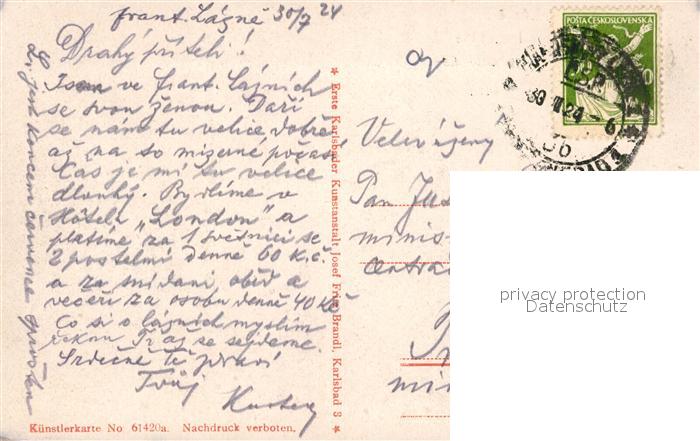 frant. Lázně 30/7 24
Drahý příteli!
Jsem ve frant. Lázních
se svou ženou. Daří
se nám tu velice dobře
až na to mizerné počasí.
Čas je mi tu velice
dlouhý. Bydlíme v
Hôtelu „London" a
platíme za 1 světnici se
2 postelmi denně 60 Kč
a za snídani, oběd a
večeři za osobu denně 40 Kč
Co si o lázních myslím
řeknu Ti až se sejdeme.
Srdečně Tě zdraví
Tvůj
koncem července
Künstlerkarte No 61420a. Nachdruck verboten.
* Erste Karlsbader Kunstanstalt, Josef Franz Brandl, Karlsbad 3 *
POŠTA ČESKOSLOVENSKÁ
30 VII 24 - 6
Velevážený
Pan
minis
centrá
min
privacy protection
Datenschutz